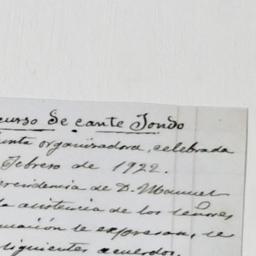 curso de cante Jondo
unta organizadora, celebrada
Febrero de 1922.
residencia de D. Manuel
la asistencia de los señores
uación se expresan, se
siguientes acuerdos.